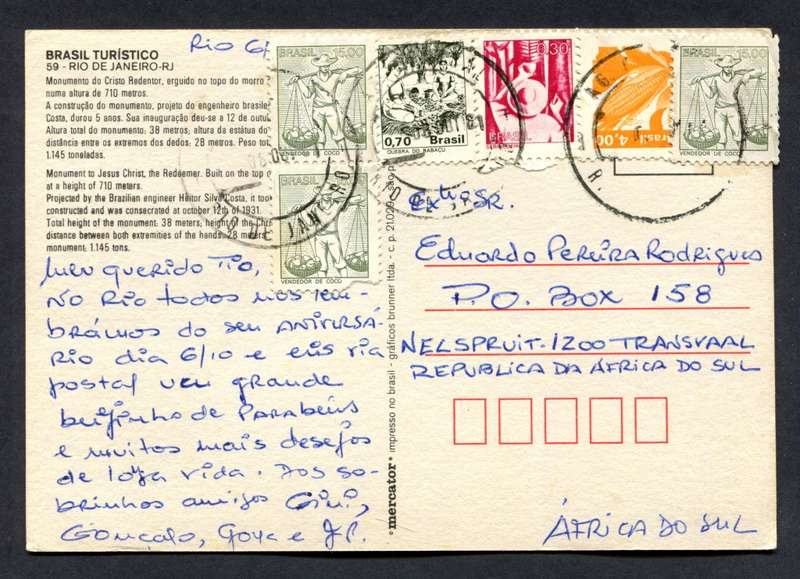 BRASIL TURÍSTICO
59 - RIO DE JANEIRO-RJ
Monumento do Cristo Redentor, erguido no topo do morro
numa altura de 710 metros.
A construção do monumento, projeto do engenheiro
Costa, durou 5 anos. Sua inauguração deu-se a 12 de
Altura total do monumento: 38 metros; altura da estátua
distância entre os extremos dos dedos: 28 metros. Peso
1.145 toneladas.
Monument to Jesus Christ, the Redeemer. Built on the top
at a height of 710 meters.
Projected by the Brazilian engineer Heitor Silva Costa, it took
constructed and was consecrated at october 12th of 1931.
Total height of the monument: 38 meters; height of the
distance between both extremities of the hands: 28 meters
monument: 1.145 tons.
Rio 6/
BRASIL 15,00
VENDEDOR DE COCO
0,70 Brasil
QUEBRA DO BABAÇU
BRASIL 0,30
Brasil 4,00
BRASIL 15,00
VENDEDOR DE COCO
BRASIL
VENDEDOR DE COCO
Meu querido Tio,
No Rio todos nos lem-
brámos do seu ANIVERSÁ-
RIO dia 6/10 e eis via
postal um grande
beijinho de Parabéns
e muitos mais desejos
de longa vida. Dos so-
brinhos amigos Gini,
Gonçalo, Goya e J.P.
mercator impresso no brasil - gráficos brunner ltda. - c.p. 21029 - são
Exmo SR.
Eduardo Pereira Rodrigues
P.O. Box 158
NELSPRUIT-1200 TRANSVAAL
REPUBLICA DA ÁFRICA DO SUL
ÁFRICA DO SUL